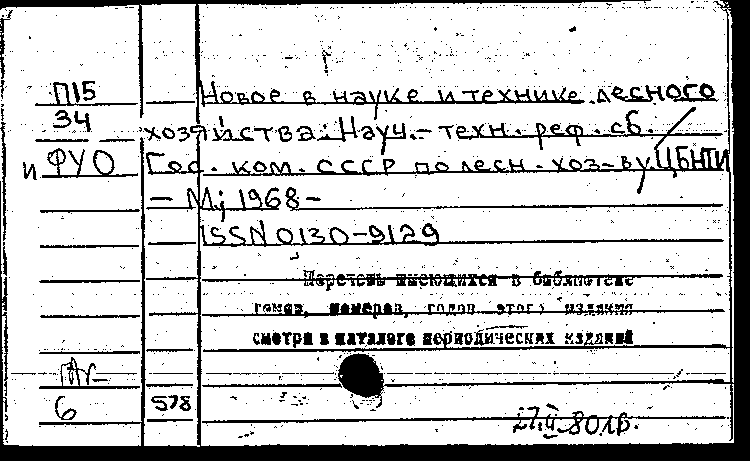 П15 Новое в науке и технике лесного
34 хозяйства: Науч.- техн. реф. сб. /
и ФУО Гос. ком. СССР по лесн. хоз-ву, ЦБНТИ
- М; 1968-
ISSN 0130-9129
Перечень имеющихся в библиотеке
томов, номеров, годов этого издания
смотри в каталоге периодических изданий
6 578